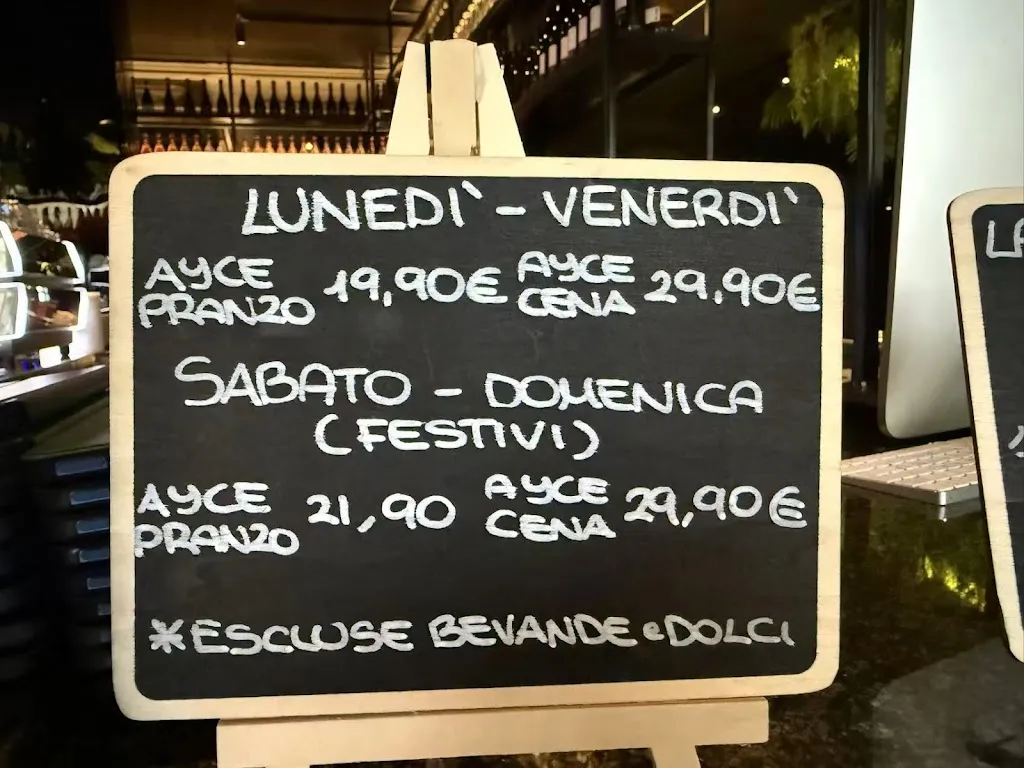 LUNEDI` - VENERDI`
AYCE PRANZO 19,90€ AYCE CENA 29,90€
SABATO - DOMENICA
(FESTIVI)
AYCE PRANZO 21,90 AYCE CENA 29,90€
*ESCLUSE BEVANDE e DOLCI